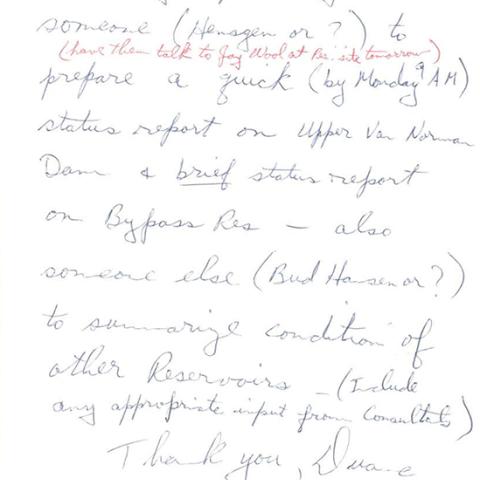 someone (Hensgen or ?) to
(have them talk to Jay Wool at Res. site tomorrow)
prepare a quick (by Monday 9 AM)
status report on Upper Van Norman
Dam & brief status report
on Bypass Res – also
someone else (Bud Hansen or ?)
to summarize condition of
other Reservoirs – (Include
any appropriate input from Consultants)
Thank you, Duane